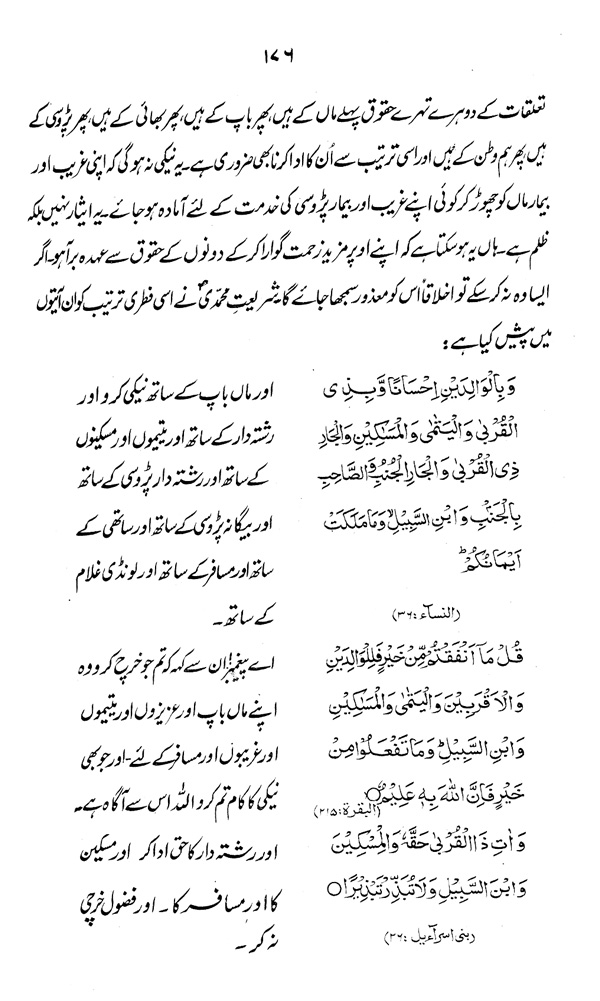 ۱۷۶
تعلقات کے دوہرے تہرے حقوق پہلے ماں کے ہیں، پھر باپ کے ہیں، پھر بھائی کے ہیں، پھر پڑوسی کے
ہیں پھر ہم وطن کے ہیں اور اسی ترتیب سے اُن کا ادا کرنا بھی ضروری ہے۔ یہ نیکی نہ ہوگی کہ اپنی غریب اور
بیمار ماں کو چھوڑ کر کوئی اپنے غریب اور بیمار پڑوسی کی خدمت کے لئے آمادہ ہو جائے۔ یہ ایثار نہیں بلکہ
ظلم ہے۔ ہاں یہ ہو سکتا ہے کہ اپنے اوپر مزید زحمت گوارا کر کے دونوں کے حقوق سے عہدہ برآ ہو۔ اگر
ایسا وہ نہ کر سکے تو اخلاقاً اس کو معذور سمجھا جائے گا، شریعتِ محمدیؐ نے اسی فطری ترتیب کو ان آیتوں
میں پیش کیا ہے :
وَبِالْوَالِدَيْنِ اِحْسَانًا وَّبِذِى
الْقُرْبٰى وَالْيَتٰمٰى وَالْمَسٰكِيْنِ وَالْجَارِ
ذِى الْقُرْبٰى وَالْجَارِ الْجُنُبِ وَالصَّاحِبِ
بِالْجَنْۢبِ وَابْنِ السَّبِيْلِ وَمَا مَلَكَتْ
اَيْمَانُكُمْ ؕ
(النساء :۳۶)
اور ماں باپ کے ساتھ نیکی کرو اور
رشتہ دار کے ساتھ اور یتیموں اور مسکینوں
کے ساتھ اور رشتہ دار پڑوسی کے ساتھ
اور بیگانہ پڑوسی کے ساتھ اور ساتھی کے
ساتھ اور مسافر کے ساتھ اور لونڈی غلام
کے ساتھ۔
قُلْ مَآ اَنْفَقْتُمْ مِّنْ خَيْرٍ فَلِلْوَالِدَيْنِ
وَالْاَقْرَبِيْنَ وَالْيَتٰمٰى وَالْمَسٰكِيْنِ
وَابْنِ السَّبِيْلِ ؕ وَمَا تَفْعَلُوْا مِنْ
خَيْرٍ فَاِنَّ اللّٰهَ بِهٖ عَلِيْمٌ ○
(البقرة :۲۱۵)
اے پیغمبر! ان سے کہہ کہ تم جو خرچ کرو وہ
اپنے ماں باپ اور عزیزوں اور یتیموں
اور غریبوں اور مسافر کے لئے۔ اور جو بھی
نیکی کا کام تم کرو اللہ اس سے آگاہ ہے۔
وَاٰتِ ذَا الْقُرْبٰى حَقَّهٗ وَالْمِسْكِيْنَ
وَابْنَ السَّبِيْلِ وَلَا تُبَذِّرْ تَبْذِيْرًا ○
(بنی اسرآءیل :۲۶)
اور رشتہ دار کا حق ادا کر اور مسکین
کا اور مسافر کا۔ اور فضول خرچی
نہ کر۔